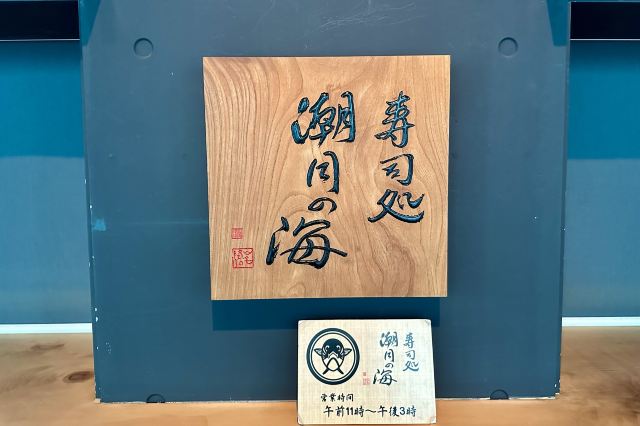 寿司処
潮目の海
寿司処
潮目の海
営業時間
午前11時～午後3時